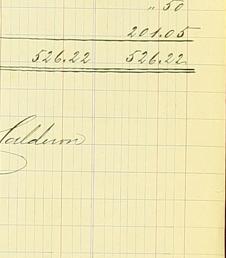 " 50
201.05
526.22 526.22
Calderon